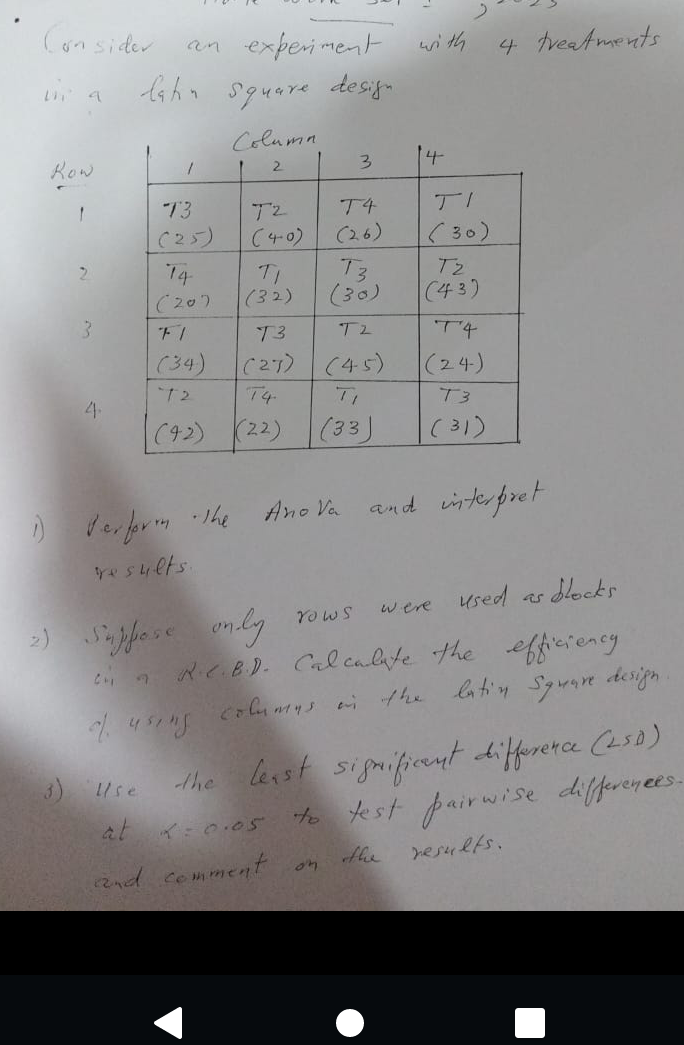 Consider an experiment with 4 treatments
in a latin square design
Column
Row 1 2 3 4
1 T3 T2 T4 T1
(25) (40) (26) (30)
2 T4 T1 T3 T2
(20) (32) (30) (43)
3 T1 T3 T2 T4
(34) (27) (45) (24)
4. T2 T4 T1 T3
(42) (22) (33) (31)
1) Perform the AnoVa and interpret
results.
2) Suppose only rows were used as blocks
in a R.C.B.D. Calculate the efficiency
of using columns in the latin square design.
3) Use the least significant difference (LSD)
at α=0.05 to test pairwise differences.
and comment on the results.